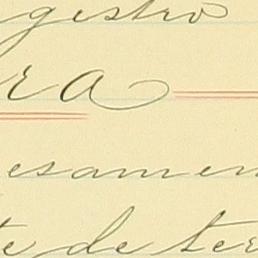 gistro
ra
esamen
te de ter